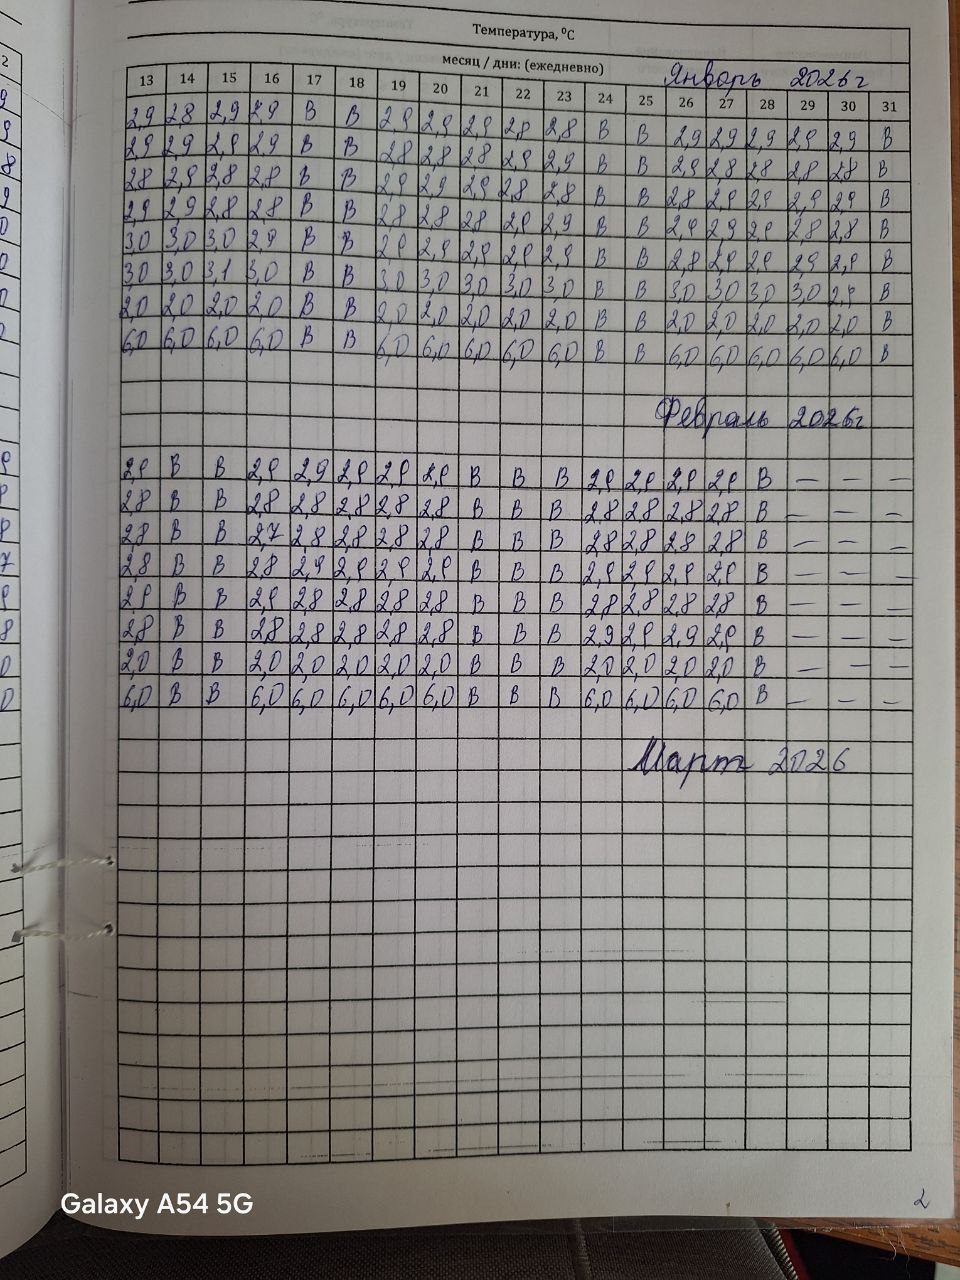 Температура, ⁰С
месяц / дни: (ежедневно) Январь 2026г
13 14 15 16 17 18 19 20 21 22 23 24 25 26 27 28 29 30 31
2,9 2,8 2,9 2,9 В В 2,9 2,9 2,9 2,8 2,8 В В 2,9 2,9 2,9 2,9 2,9 В
2,9 2,9 2,9 2,9 В В 2,8 2,8 2,8 2,9 2,9 В В 2,9 2,8 2,8 2,8 2,8 В
2,8 2,9 2,8 2,8 В В 2,9 2,9 2,9 2,8 2,8 В В 2,8 2,9 2,9 2,9 2,9 В
2,9 2,9 2,8 2,8 В В 2,8 2,8 2,8 2,9 2,9 В В 2,9 2,9 2,9 2,8 2,8 В
3,0 3,0 3,0 2,9 В В 2,9 2,9 2,9 2,9 2,9 В В 2,8 2,9 2,9 2,9 2,9 В
3,0 3,0 3,1 3,0 В В 3,0 3,0 3,0 3,0 3,0 В В 3,0 3,0 3,0 3,0 2,9 В
2,0 2,0 2,0 2,0 В В 2,0 2,0 2,0 2,0 2,0 В В 2,0 2,0 2,0 2,0 2,0 В
6,0 6,0 6,0 6,0 В В 6,0 6,0 6,0 6,0 6,0 В В 6,0 6,0 6,0 6,0 6,0 В
Февраль 2026г
2,9 В В 2,9 2,9 2,9 2,9 2,9 В В В 2,9 2,9 2,9 2,9 В — — —
2,8 В В 2,8 2,8 2,8 2,8 2,8 В В В 2,8 2,8 2,8 2,8 В — — —
2,8 В В 2,7 2,8 2,8 2,8 2,8 В В В 2,8 2,8 2,8 2,8 В — — —
2,8 В В 2,8 2,9 2,9 2,9 2,9 В В В 2,9 2,9 2,9 2,9 В — — —
2,9 В В 2,9 2,8 2,8 2,8 2,8 В В В 2,8 2,8 2,8 2,8 В — — —
2,8 В В 2,8 2,8 2,8 2,8 2,8 В В В 2,9 2,9 2,9 2,9 В — — —
2,0 В В 2,0 2,0 2,0 2,0 2,0 В В В 2,0 2,0 2,0 2,0 В — — —
6,0 В В 6,0 6,0 6,0 6,0 6,0 В В В 6,0 6,0 6,0 6,0 В — — —
Март 2026
Galaxy A54 5G
2